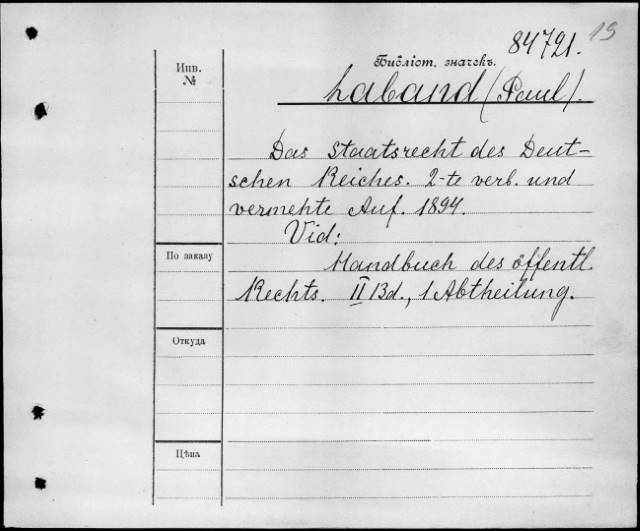 84721. 19
Библіот. значекъ.
Laband (Paul).
Инв.
№
Das Staatsrecht des Deut-
schen Reiches. 2-te verb. und
vermehte Auf. 1894.
Vid:
По заказу
Handbuch des öffentl.
Rechts. II Bd., 1 Abtheilung.
Откуда
Цѣна